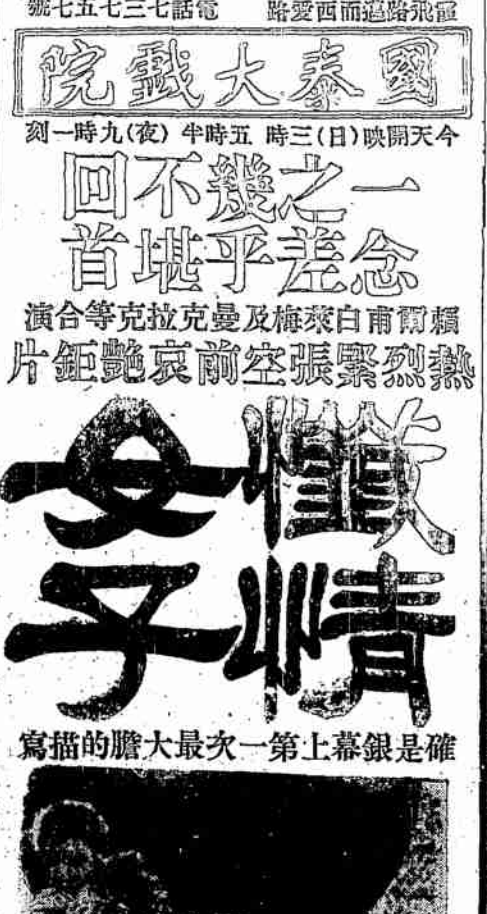 霞飛路邁而西愛路 電話七三七五七號
國泰大戲院
今天開映(日)三時 五時半 (夜)九時一刻
一念之差幾乎不堪回首
賴爾甫白萊梅及曼克拉克等合演
熱烈緊張空前哀艷鉅片
懺情
女子
確是銀幕上第一次最大膽的描寫